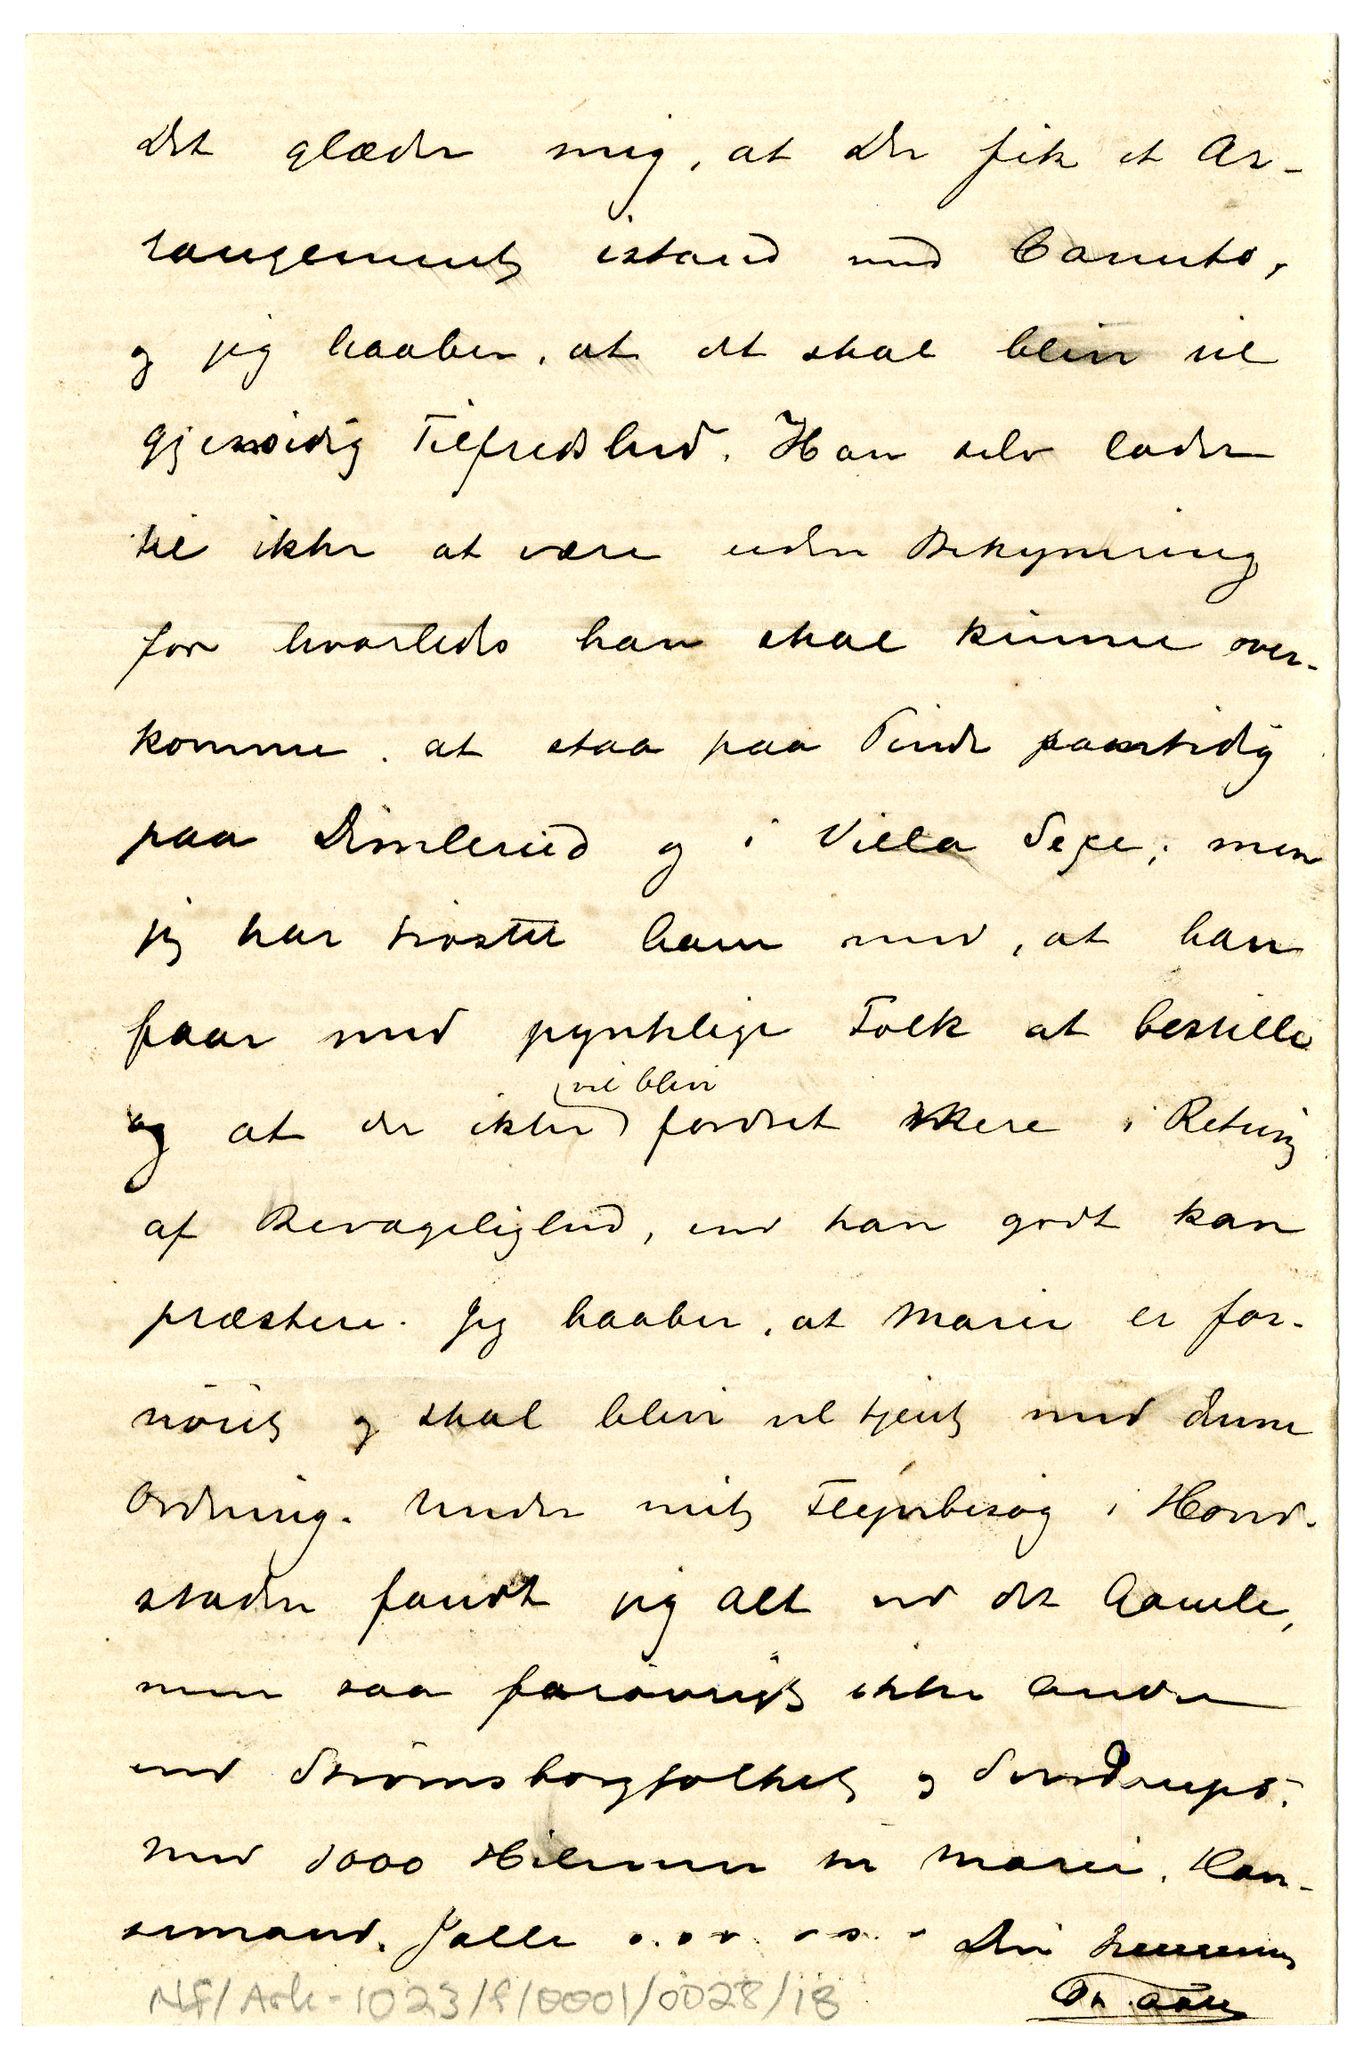 Det glæder mig, at Du fik et Ar-
rangement istand med Canuto,
og jeg haaber, at det skal blive til
gjensidig Tilfredshed. Han selv lader
til ikke at være uden Bekymring
for hvorledes han skal kunne over-
komme at staa paa Pinde samtidig
paa Dimlerud og i Villa Sexe; men
jeg har trøstet ham med, at han
faar med pynktlige Folk at bestille
og at der ikke vil blive fordret mere i Retning
af Bevægelighed, end han godt kan
præstere. Jeg haaber, at Marie er for-
nöiet og skal blive vel tjent med denne
Ordning. Under mit Flygtbesøg i Hoved-
staden fandt jeg Alt ved det Gamle,
men saa forøvrigt ikke Andre
end Strömsborgfolket og
med 1000 Hilsener til Marie, Han-
semand, Jalle . . . . . . . Din hengivne
NF/Ark-1023/f/0001/0028/18